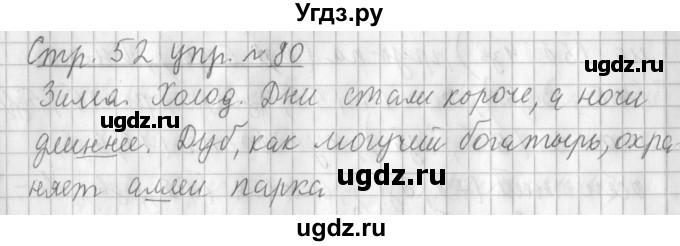 Угдз.ру
Стр. 52 упр. №80
Зима. Холод. Дни стали короче, а ночи
длиннее. Дуб, как могучий богатырь, охра-
няет аллеи парка
ugdz.ru
ugdz.ru
ugdz.ru
ugdz.ru
ugdz.ru